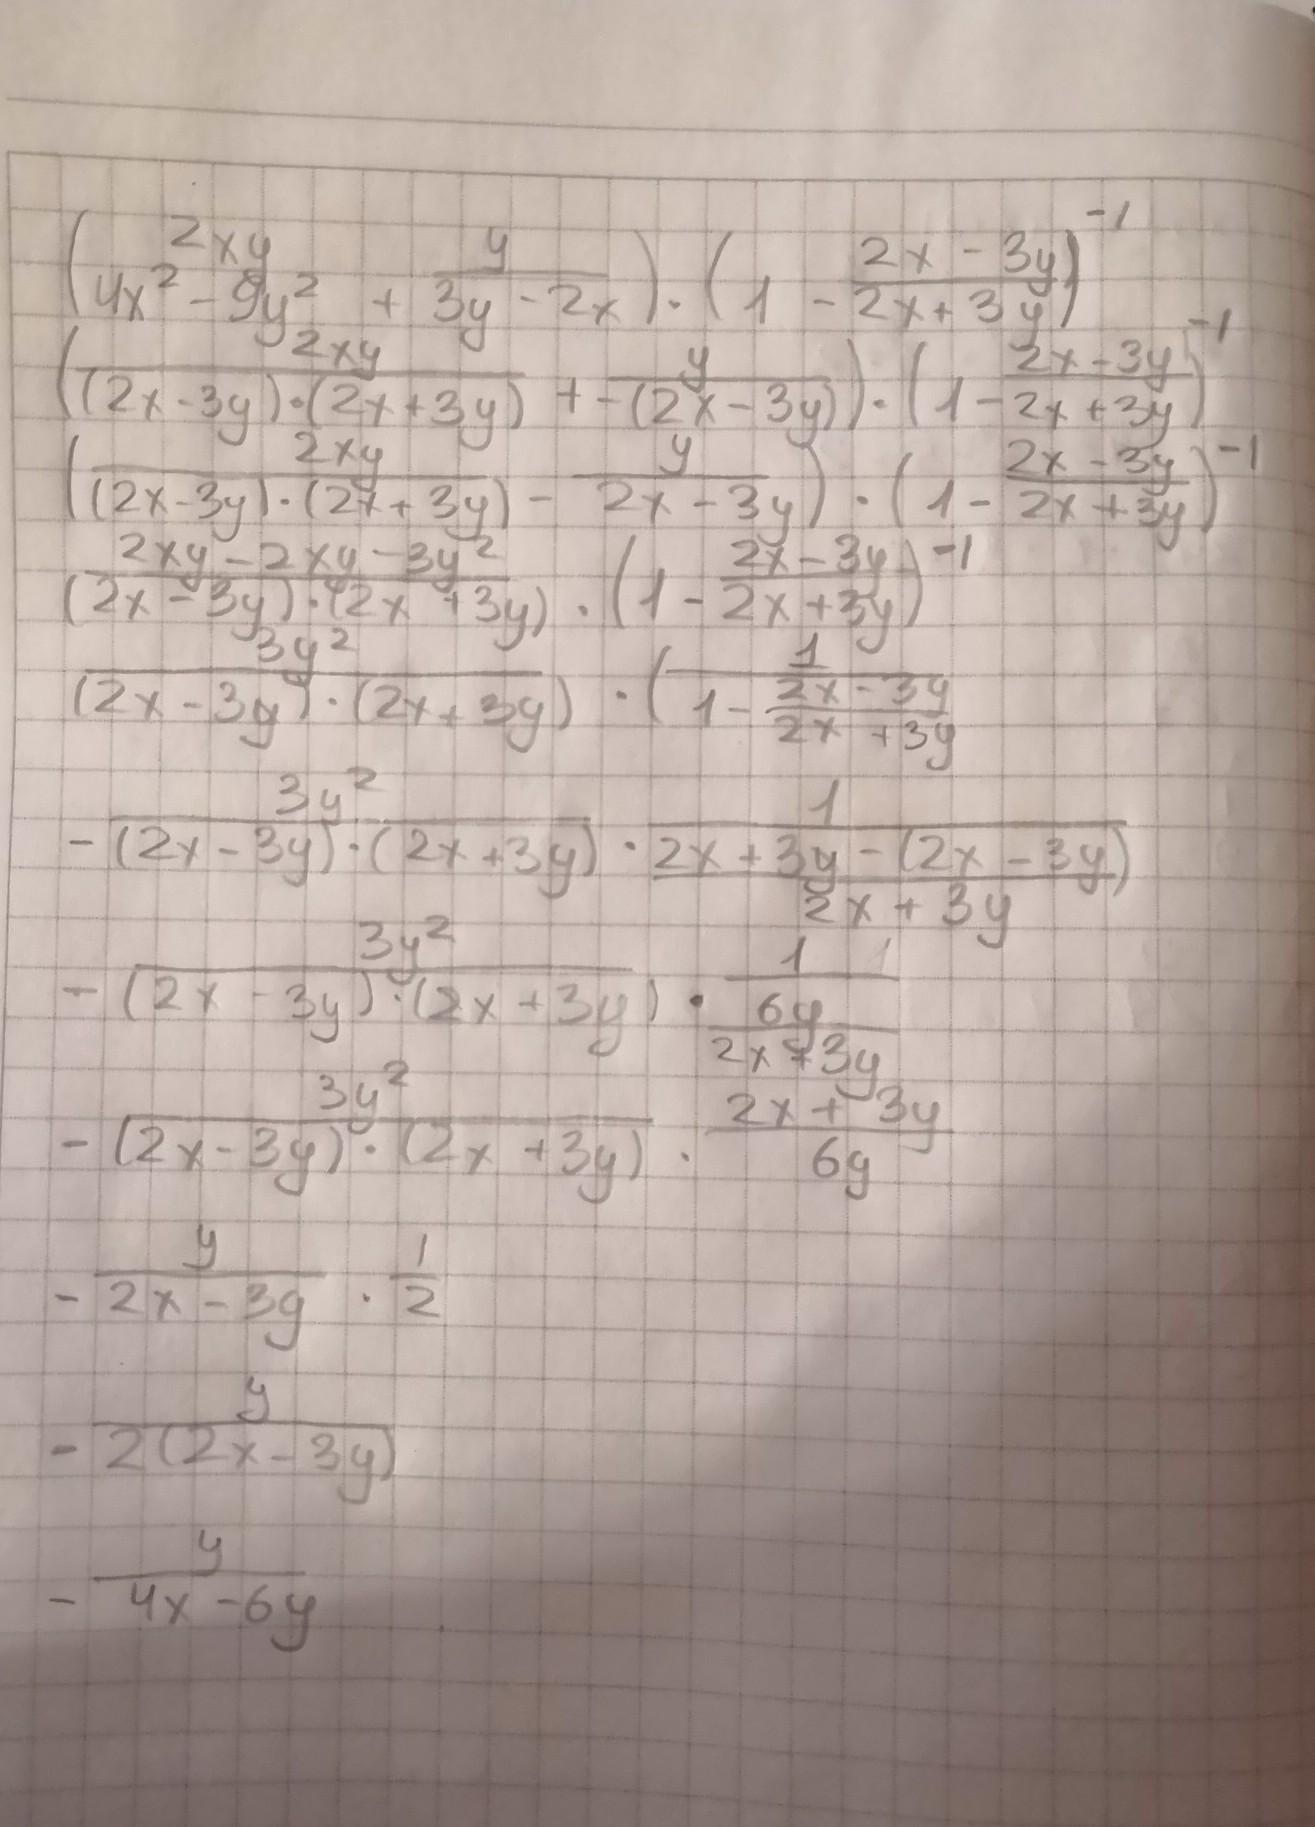 (2xy/(4x² - 9y²) + y/(3y - 2x)) · (1 - (2x - 3y)/(2x + 3y))⁻¹
(2xy/((2x - 3y)·(2x + 3y)) + y/(-(2x - 3y))) · (1 - (2x - 3y)/(2x + 3y))⁻¹
(2xy/((2x - 3y)·(2x + 3y)) - y/(2x - 3y)) · (1 - (2x - 3y)/(2x + 3y))⁻¹
(2xy - 2xy - 3y²)/((2x - 3y)·(2x + 3y)) · (1 - (2x - 3y)/(2x + 3y))⁻¹
3y²/((2x - 3y)·(2x + 3y)) · (1/(1 - (2x - 3y)/(2x + 3y))
- 3y²/((2x - 3y)·(2x + 3y)) · 1/((2x + 3y - (2x - 3y))/(2x + 3y))
- 3y²/((2x - 3y)·(2x + 3y)) · 1/(6y/(2x + 3y))
- 3y²/((2x - 3y)·(2x + 3y)) · (2x + 3y)/6y
- y/(2x - 3y) · 1/2
- y/(2(2x - 3y))
- y/(4x - 6y)